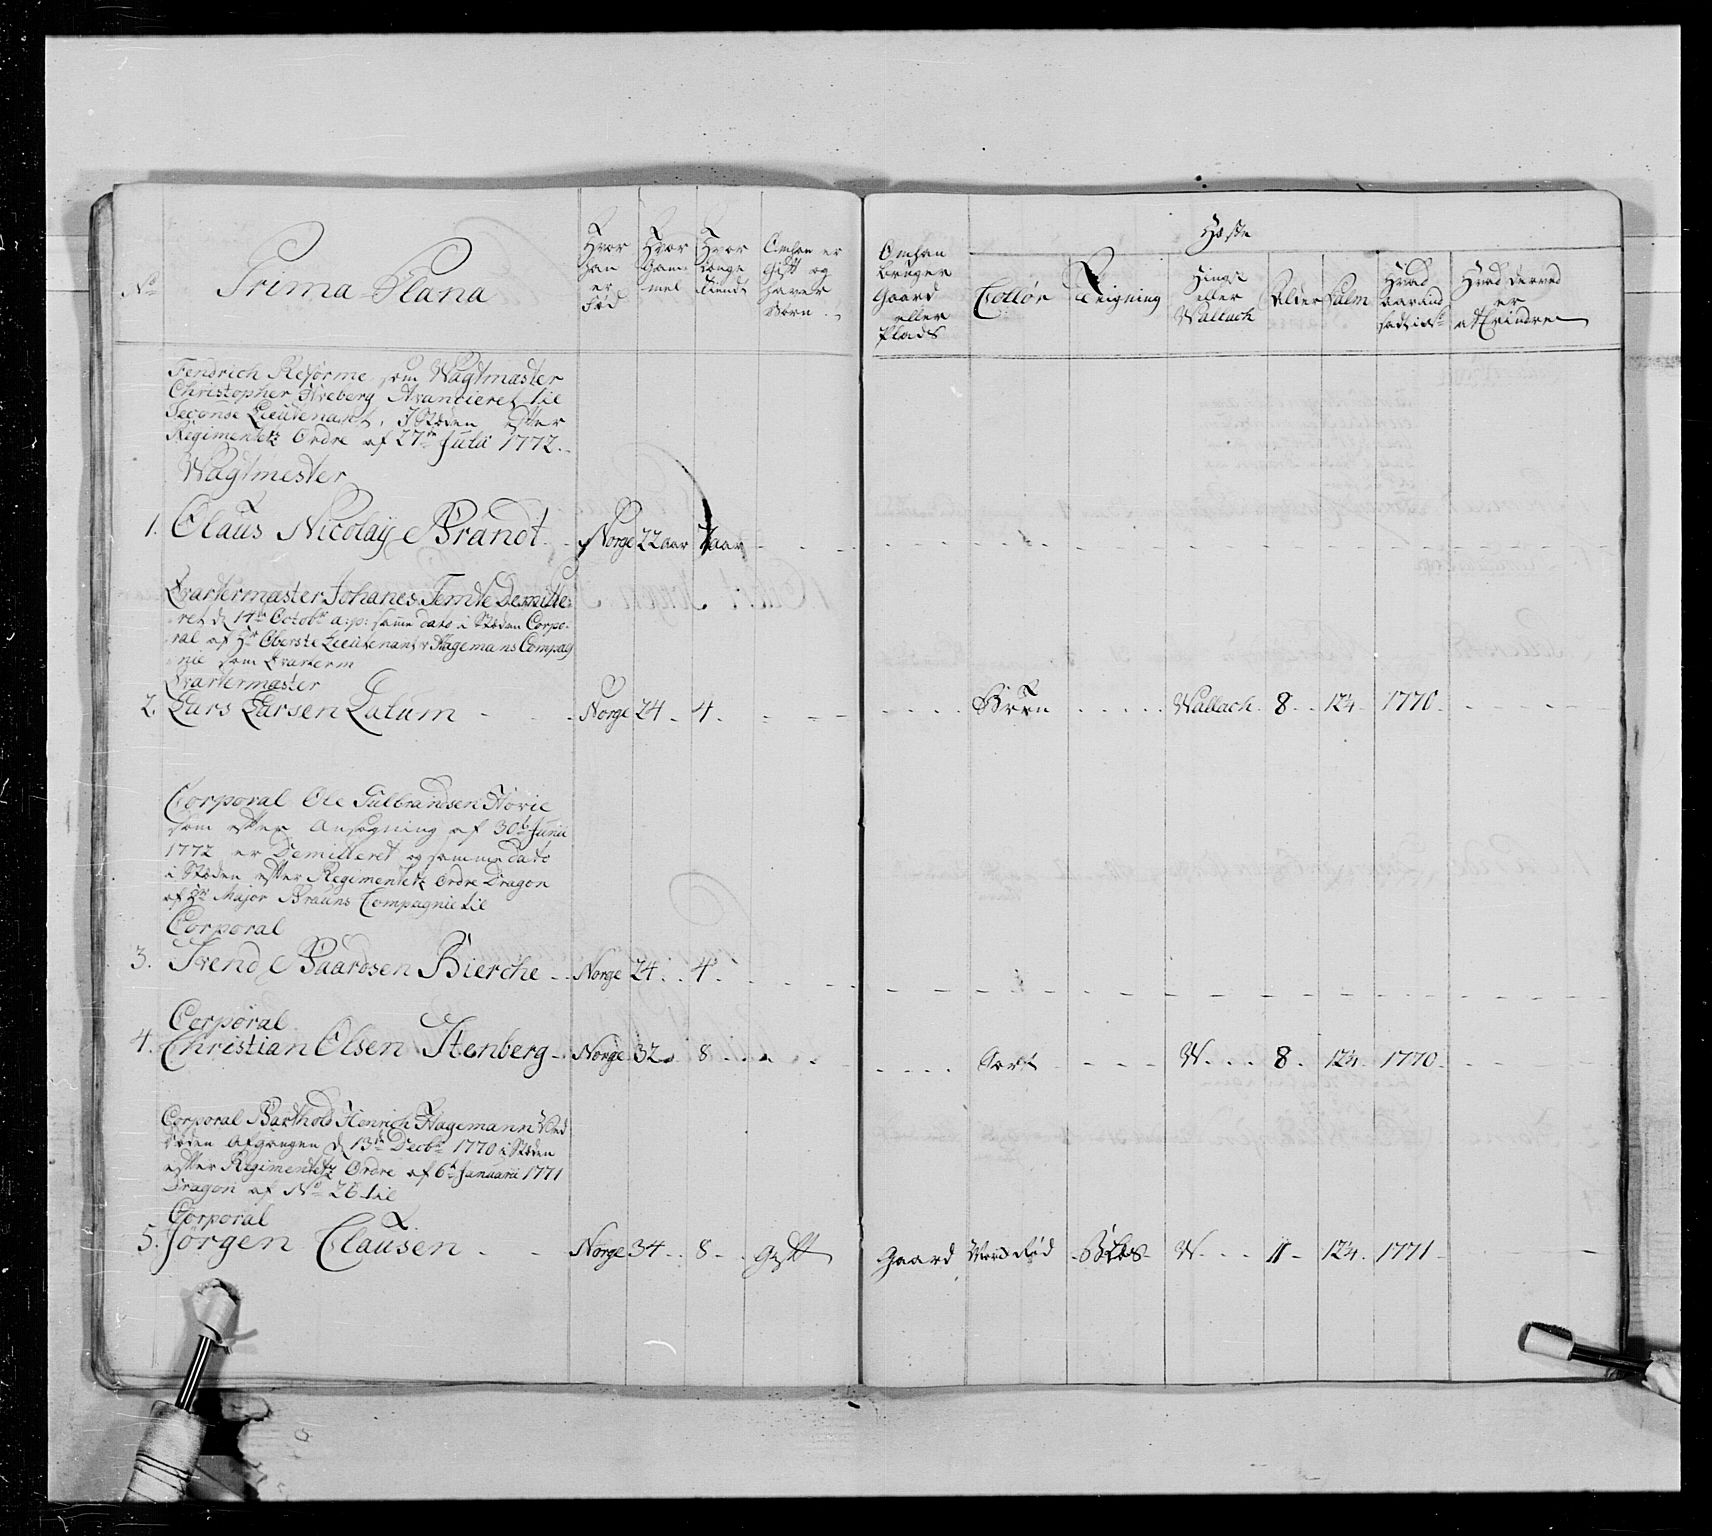 No
Prima Plana
Hvor
han
er
Fød
Hvor
Gam-
mel
Hvor
Længe
Tiendt
Om han er
Gift og
haver
Børn
Om han
bruger
Gaard
eller
Plads
Heste
Collør
Teigning
Hingst
eller
Wallach
Alder
Palm
Hvad
Aar and
Hvad derved
er
at Erindre
Fendrich Reforme som Wagtmæster
Christopher Avancieret til
Seconde Lieutenant, i Stæden efter
Regimentetz Ordre af 27de Julii 1772.
Wagtmester
1. Claus Nicolaÿ Brandt - Norge 22 aar 7 aar
Qvartermæster Johanes Temte Demitte-
ret d 14de Octobr a: p: samme dato i Stæden Corpo-
ral af Hr Oberste Lieutenant v Hagemans Compag
nie som Qvarterm
Qvartermæster
2. Lars Larsen Latum - Norge 24 - 4 - Brun - Wallach 8 - 12¼ - 1770
Corporal Ole Gulbrandsen Hovie
som efter Ansøgning af 30te Junii
1772 er Demitteret og samme dato
i Stæden efter Regimentetz Ordre Dragon
af Hr Major Brauns Compagnie til
Corporal
3. Svend Baardsen Bierche - Norge 24 - 4
Corporal
4. Christian Olsen Stenberg - Norge 32 - 8 - Sort - W - 8 - 12¼ - 1770
Corporal Barthold Henrich Hagemann Ved
Døden Afgangen d 13de Decbr 1770 i Stæden
efter Regimentetz Ordre af 6te Januarii 1771
Dragon af No 26 til
Corporal
5. Jørgen Clausen - Norge 34 - 8 - Gift Gaard rød Blis W - 11 - 12¼ - 1771 -